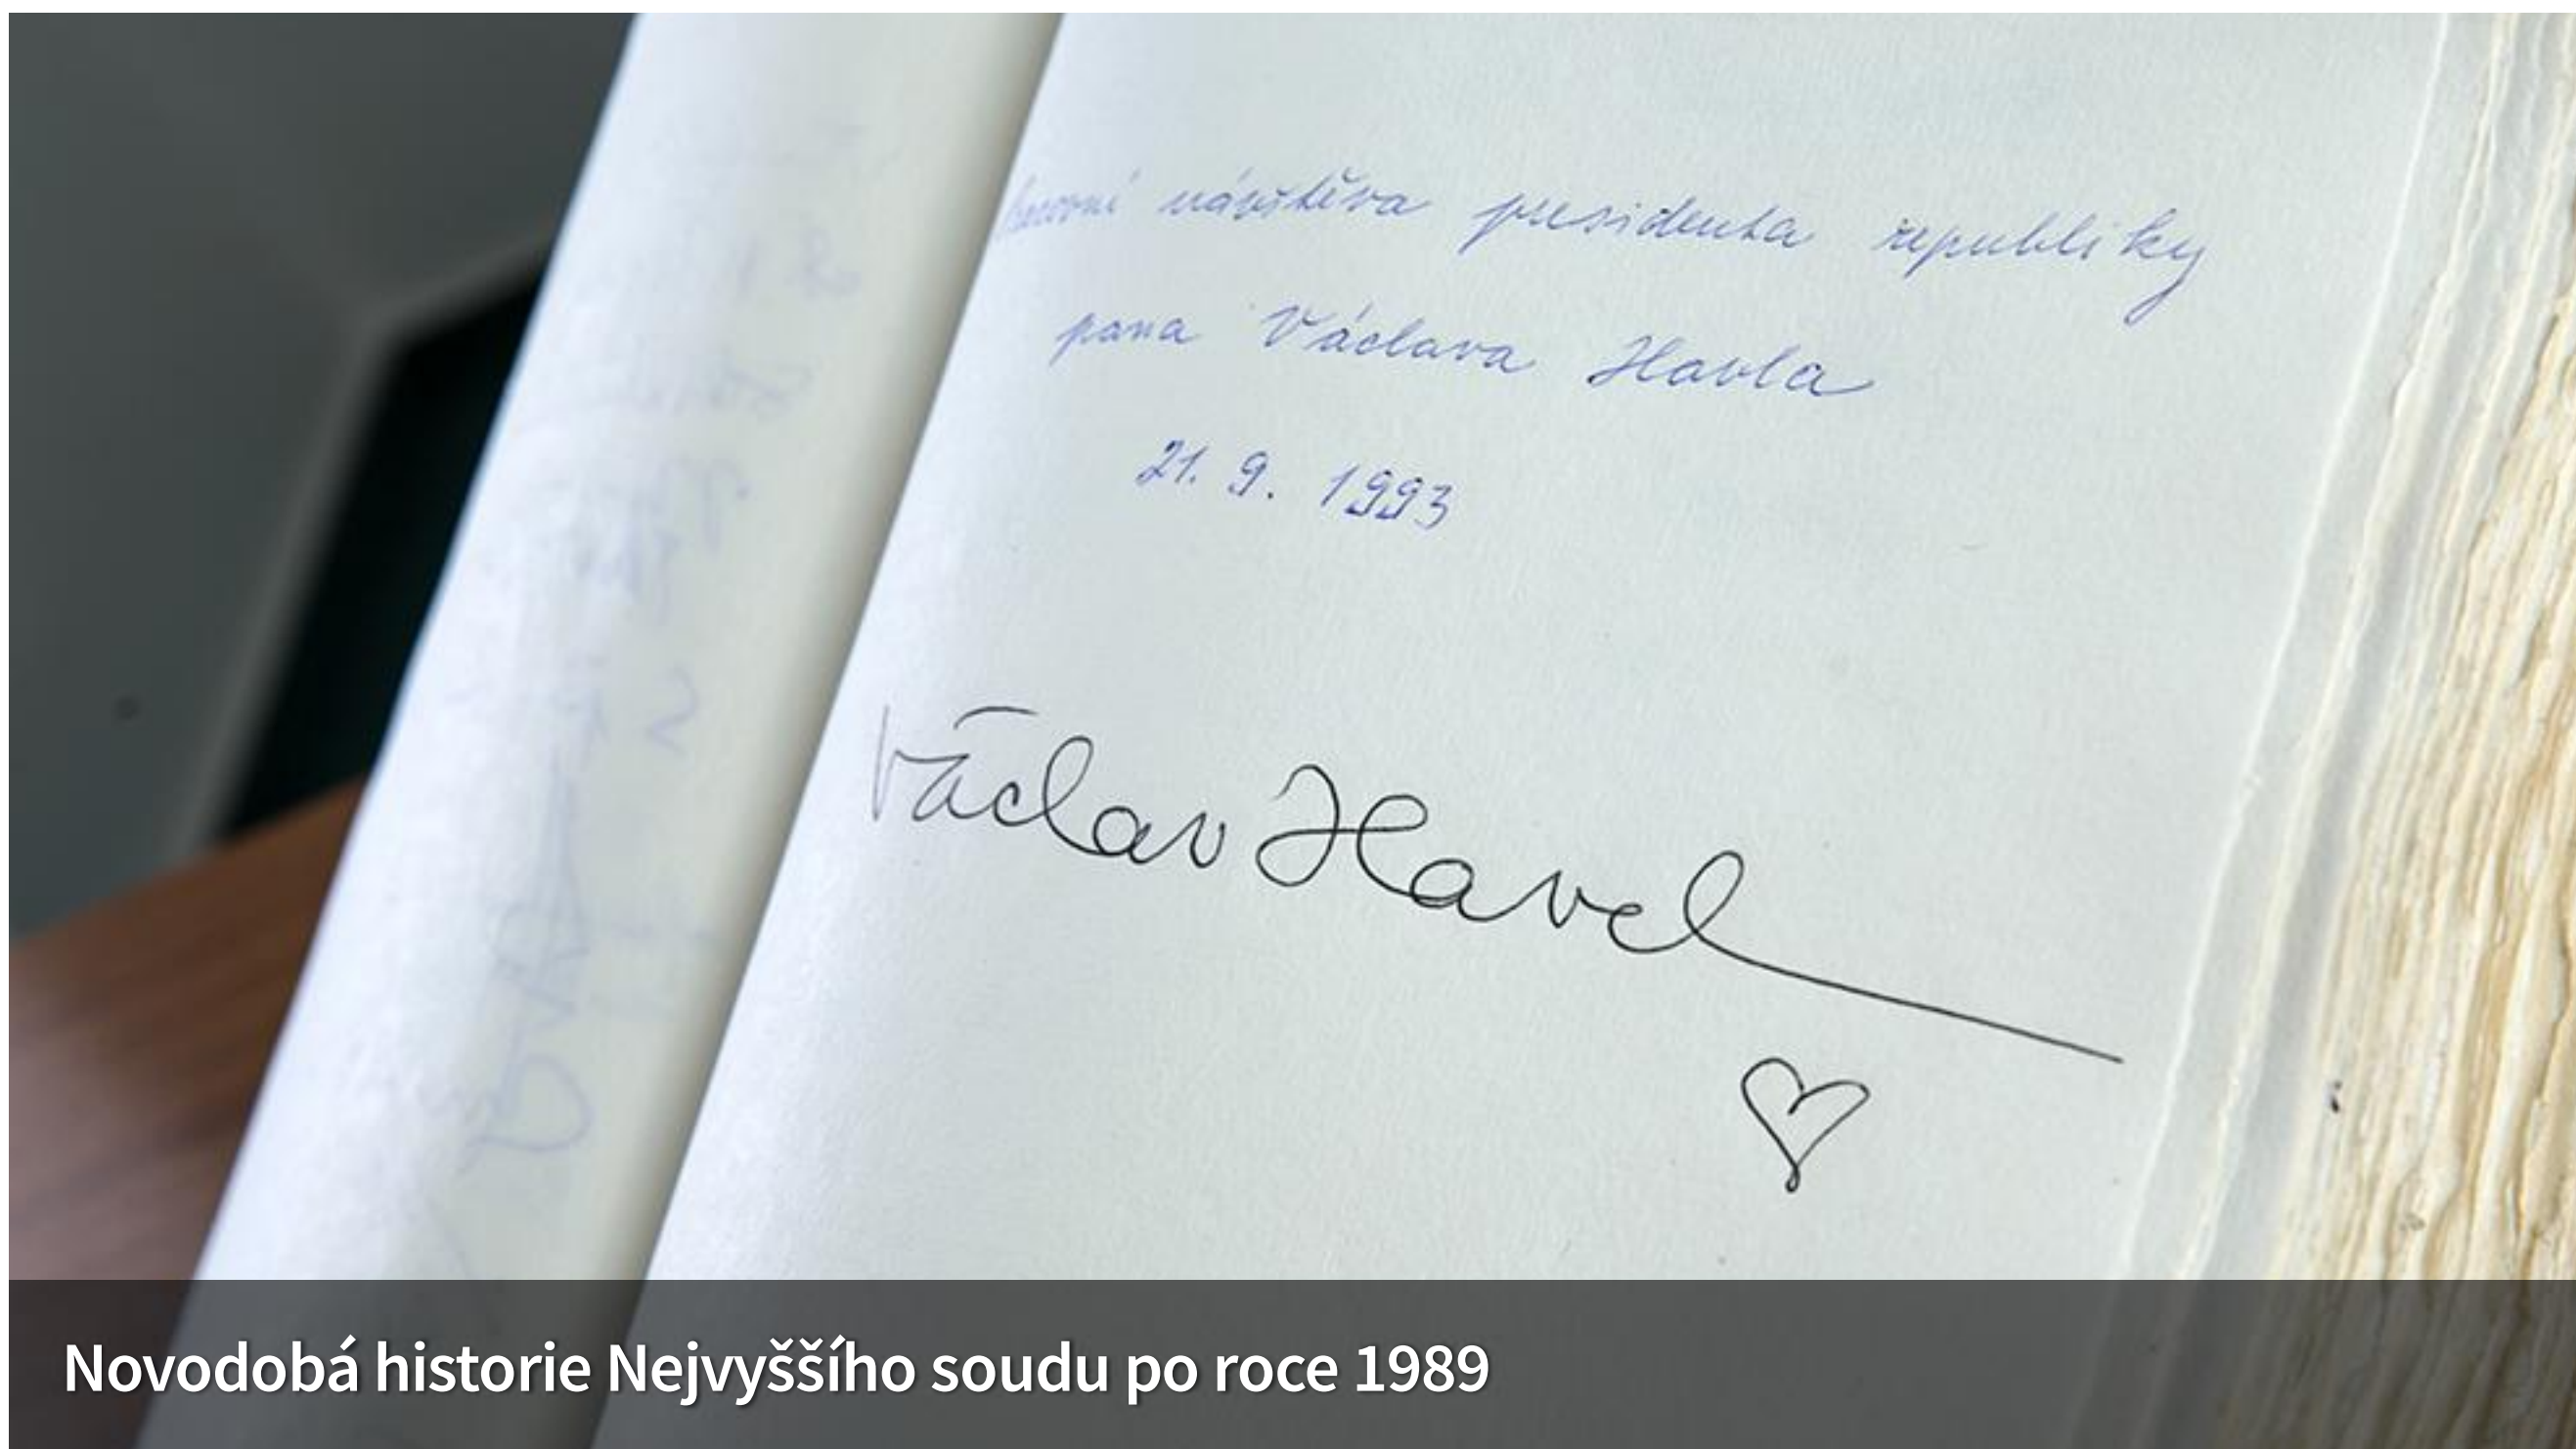 návštěva presidenta republiky
pana Václava Havla
21. 9. 1993
Václav Havel
Novodobá historie Nejvyššího soudu po roce 1989